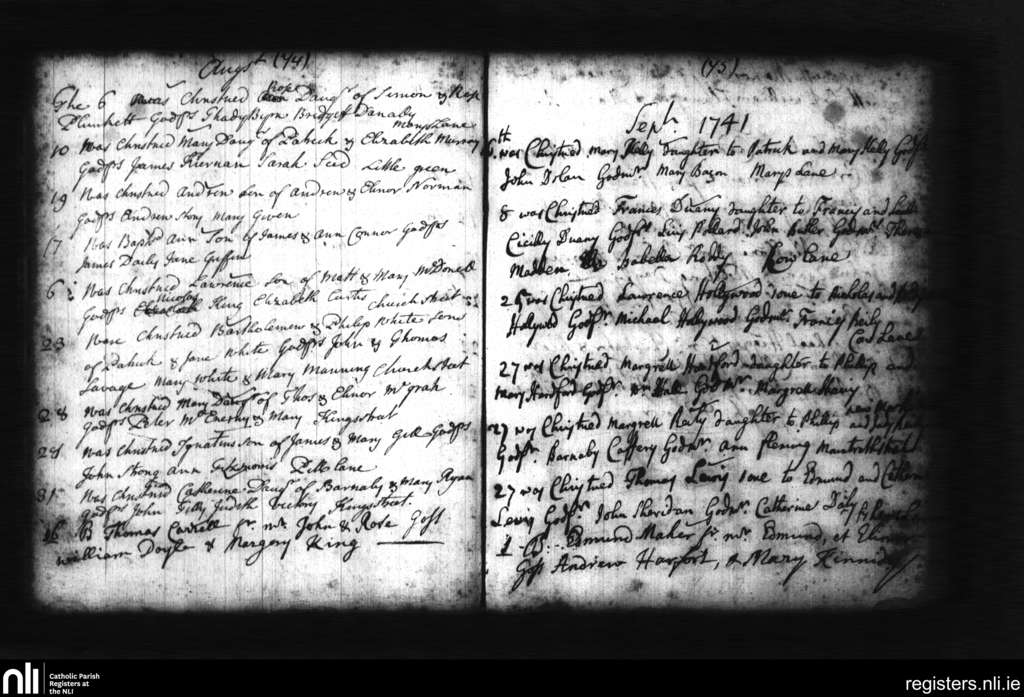 Augst (74)
The 6 was Christned Rose Daugr of Simon & Rose
Plunkett Godfrs Thady Byrn Bridget Danaby
Marys Lane
10 Was Christned Mary Daugr of Patrick & Elizabeth Murray
Godfrs James Kiernan Sarah Seed Little green
19 Was Christned Andrew son of Andrew & Elinor Norman
Godfrs Andrew Mary Gwen
17 Was Baptd Ann Son of James & Ann Connor Godfrs
James Daily Jane Giffin
6 Was Christned Lawrence son of Matt & Mary McDonell
Godfrs Nicolas King Elizabeth Curtis Church street
23 Were Christned Bartholomew & Philip White sons
of Patrick & Jane White Godfrs John & Thomas
Savage Mary White & Mary Manning Church street
28 Was Christned Mary Daugr of Thos & Elinor McGrah
Godfrs Peter McEnerny & Mary Kingstreet
28 Was Christned Ignatius son of James & Mary Gill Godfrs
John Strong Ann Fitzmoris Pill lane
31 Was Christned Catherine Daugr of Barnaby & Mary Ryan
Godfrs John Tilly Judeth Victory Kingstreet
16 B Thomas Carrell fr. mr. John & Rose Goss
William Doyle & Margery King
(75)
Septr 1741
6th was Christned Mary Reilly daughter to Patrick and Mary Reilly Godfr
John Dolan Godmr. Mary Bacon Marys Lane
8 was Christned Frances Duany daughter to Francis and
Cicilly Duany Godfr. Luis Pollard John Butler Godmr.
Madden Isabella Reddy Row lane
25 was Christned Lawrence Hollywood sone to Nicholas and
Hollywod Godfr. Michael Hollywood Godmr. Frances Reily
Cow Lane
27 was Christned Margrett Hartford daughter to Phillip and
Mary Hartford Godfr. Wm Hall Godmr. Margrett
27 was Christned Margrett Reily daughter to Phillip and
Godfr. Barnaby Caffery Godmr. Ann Fleming
27 was Christned Thomas Lewis sone to Edmund and Catherine
Lewis Godfr. John Sheridan Godmr. Catherine Daly
1 B. Edmund Maher fr. mr. Edmund, et
Goss Andrew Harford, & Mary Kennedy
nli
Catholic Parish
Registers at
the NLI
registers.nli.ie